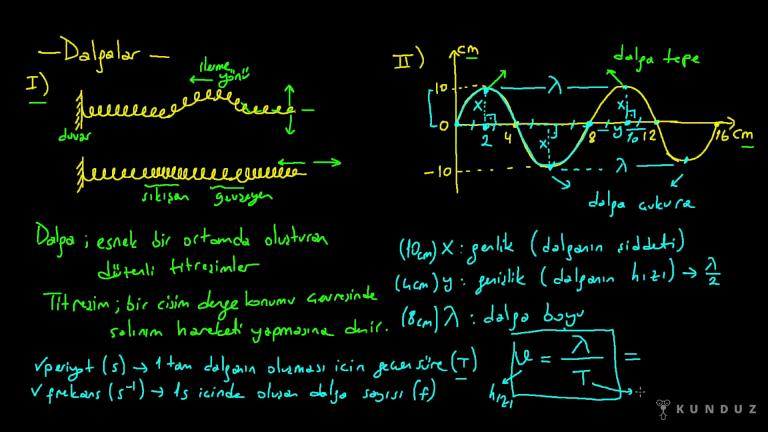 — Dalgalar —
I)
ilerme
yönü
duvar
sıkışan gevşeyen
Dalga ; esnek bir ortamda oluşturan
düzenli titreşimler
Titreşim ; bir cisim denge konumu çevresinde
salınım hareketi yapmasına denir.
✓periyot (s) → 1 tam dalganın oluşması için geçen süre (T)
✓frekans (s⁻¹) → 1s içinde oluşan dalga sayısı (f)
II)
cm
dalga tepe
10 λ
x x
0 2 4 8 y 10 12 16 cm
x
-10 λ
dalga çukuru
(10cm) X : genlik (dalganın şiddeti)
(4cm) y : genişlik (dalganın hızı) → λ/2
(8cm) λ : dalga boyu
v = λ/T =
hızı
KUNDUZ